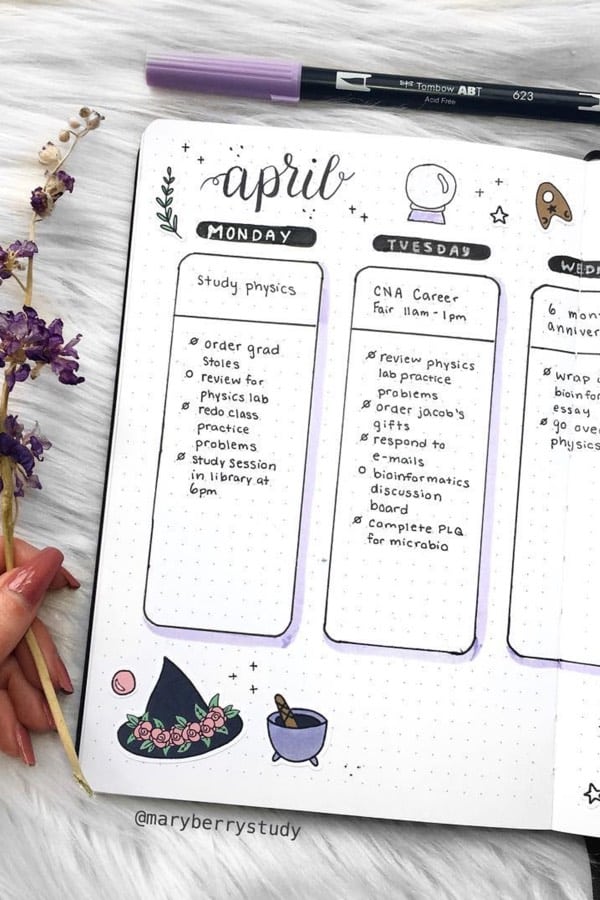 Tombow ABT
623
Acid Free
april
MONDAY
Study physics
ø order grad
stoles
o review for
physics lab
ø redo class
practice
problems
ø study session
in library at
6pm
TUESDAY
CNA Career
Fair 11am-1pm
ø review physics
lab practice
problems
ø order jacob's
gifts
ø respond to
e-mails
o bioinformatics
discussion
board
ø complete PLQ
for microbio
WED
6 mon
anniver
ø wrap
bioinfor
essay
ø go ove
physics
@maryberrystudy